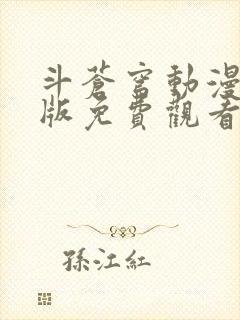 斗蒼穹動漫
版免費觀看
孫江紅